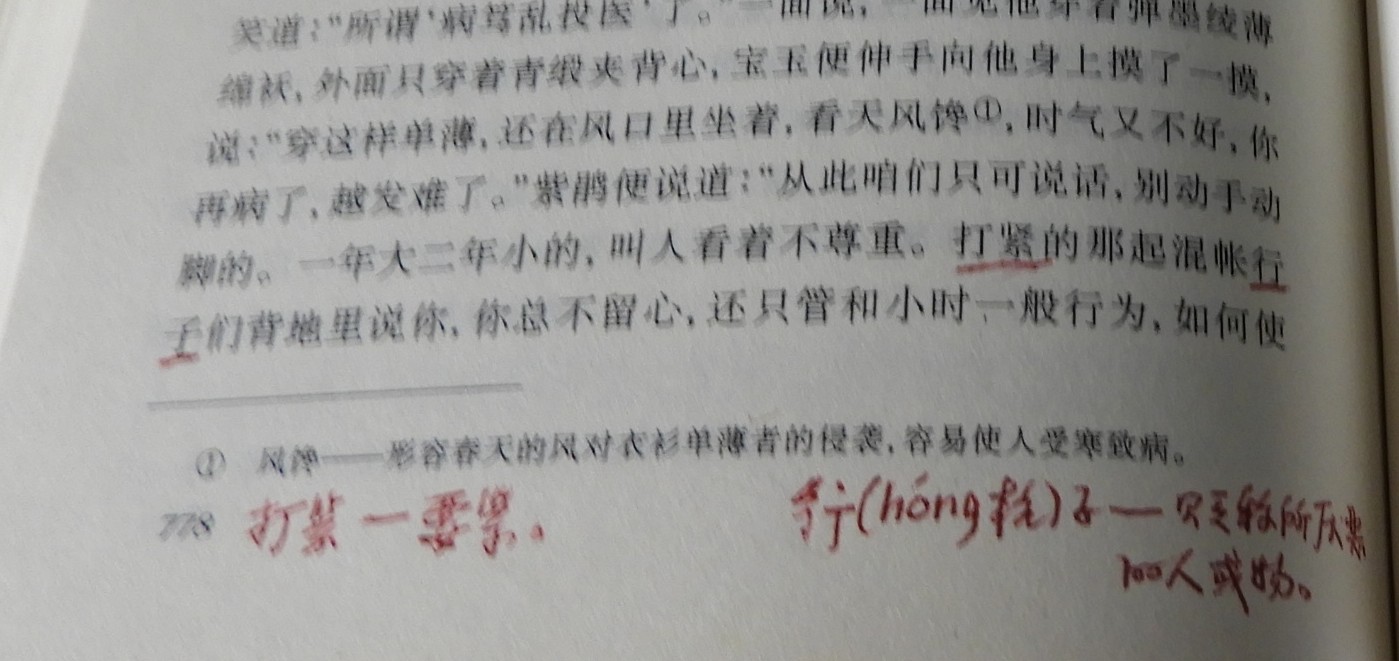 笑道：“所谓‘病笃乱投医’了。”一面说，一面见他穿着弹墨绫薄
绵袄，外面只穿着青缎夹背心，宝玉便伸手向他身上摸了一摸，
说：“穿这样单薄，还在风口里坐着，看天风馋①，时气又不好，你
再病了，越发难了。”紫鹃便说道：“从此咱们只可说话，别动手动
脚的。一年大二年小的，叫人看着不尊重。打紧的那起混帐行
子们背地里说你，你总不留心，还只管和小时一般行为，如何使
① 风馋——形容春天的风对衣衫单薄者的侵袭，容易使人受寒致病。
778
打紧一要紧。
行(háng 杭)子—贬称所厌恶
人或物。